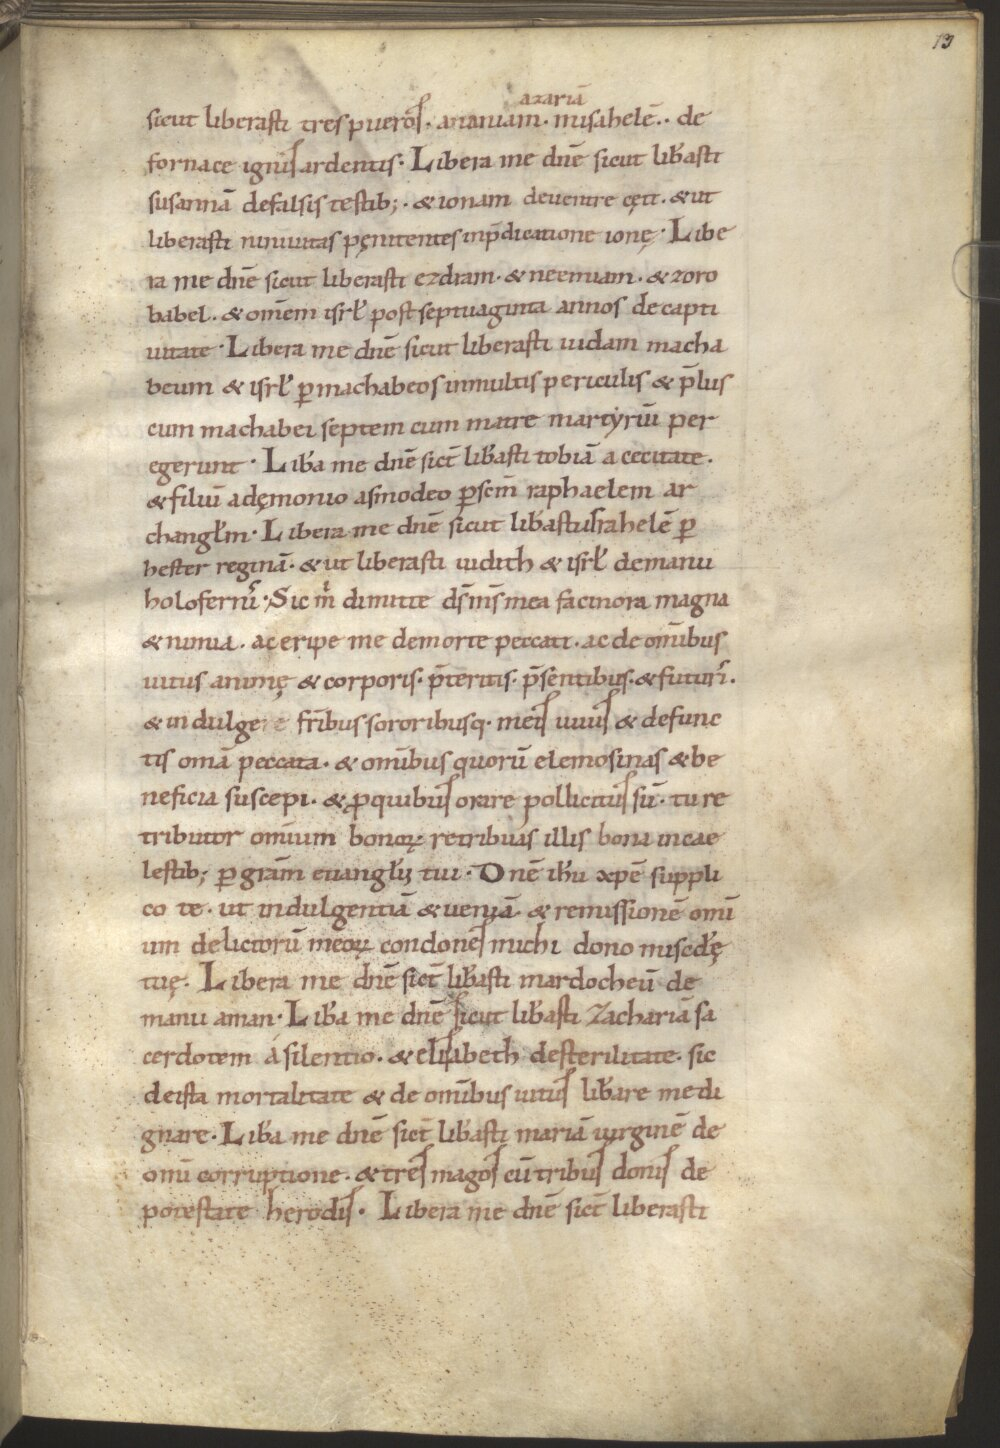 13
azariā
sicut liberasti tres pueros · ananiam · misahelē · de
fornace ignis ardentis · Libera me dnē sicut lib̄asti
susannā de falsis testib; · & ionam de uentre cęti · & ut
liberasti niniuitas pęnitentes in p̄dicatione ionę · Libe
ra me dnē sicut liberasti ezdram · & neemiam · & zoro
babel · & om̄em isrł post septuaginta annos de capti
uitate · Libera me dnē sicut liberasti iudam macha
beum & isrł ꝑ machabeos in multis periculis & p̄lus
cum machabei septem cum matre martyriū per
egerunt · Lib̄a me dnē sic̄t lib̄asti tobiā a cecitate ·
& filiū a dęmonio asmodeo ꝑ sc̄m raphaelem ar
changł̄m · Libera me dnē sicut lib̄asti israhelē ꝑ
hester reginā · & ut liberasti iudith & isrł de manu
holofernis · Sic m̄ dimitte ds̄ ms̄ mea facinora magna
& nimia · ac eripe me de morte peccati · ac de om̄ibus
uitiis animę & corporis · p̄teritis · p̄sentibus · & futuris ·
& indulgere fr̄ibus sororibusq· meis uiuis & defunc
tis om̄a peccata · & om̄ibus quorū elemosinas & be
neficia suscepi · & ꝓ quibus orare pollicitus sū · tu re
tributor om̄ium bonoꝝ retribuas illis bona in cae
lestib; ꝑ gr̄am euangłii tui · Dnē ih̄u xp̄e suppli
co te · ut indulgentiā & ueniā · & remissionē om̄i
um delictorū meoꝝ condones michi dono miscdł̄ę
tuę · Libera me dnē sic̄t lib̄asti mardocheū de
manu aman · Lib̄a me dnē sicut lib̄asti Zachariā sa
cerdotem á silentio · & elisabeth de sterilitate · sic
de ista mortalitate & de om̄ibus uitiis lib̄are me di
gnare · Lib̄a me dnē sic̄t lib̄asti mariā uirginē de
om̄i corruptione · & tres magos cū tribus donis de
potestate herodis · Libera me dnē sic̄t liberasti